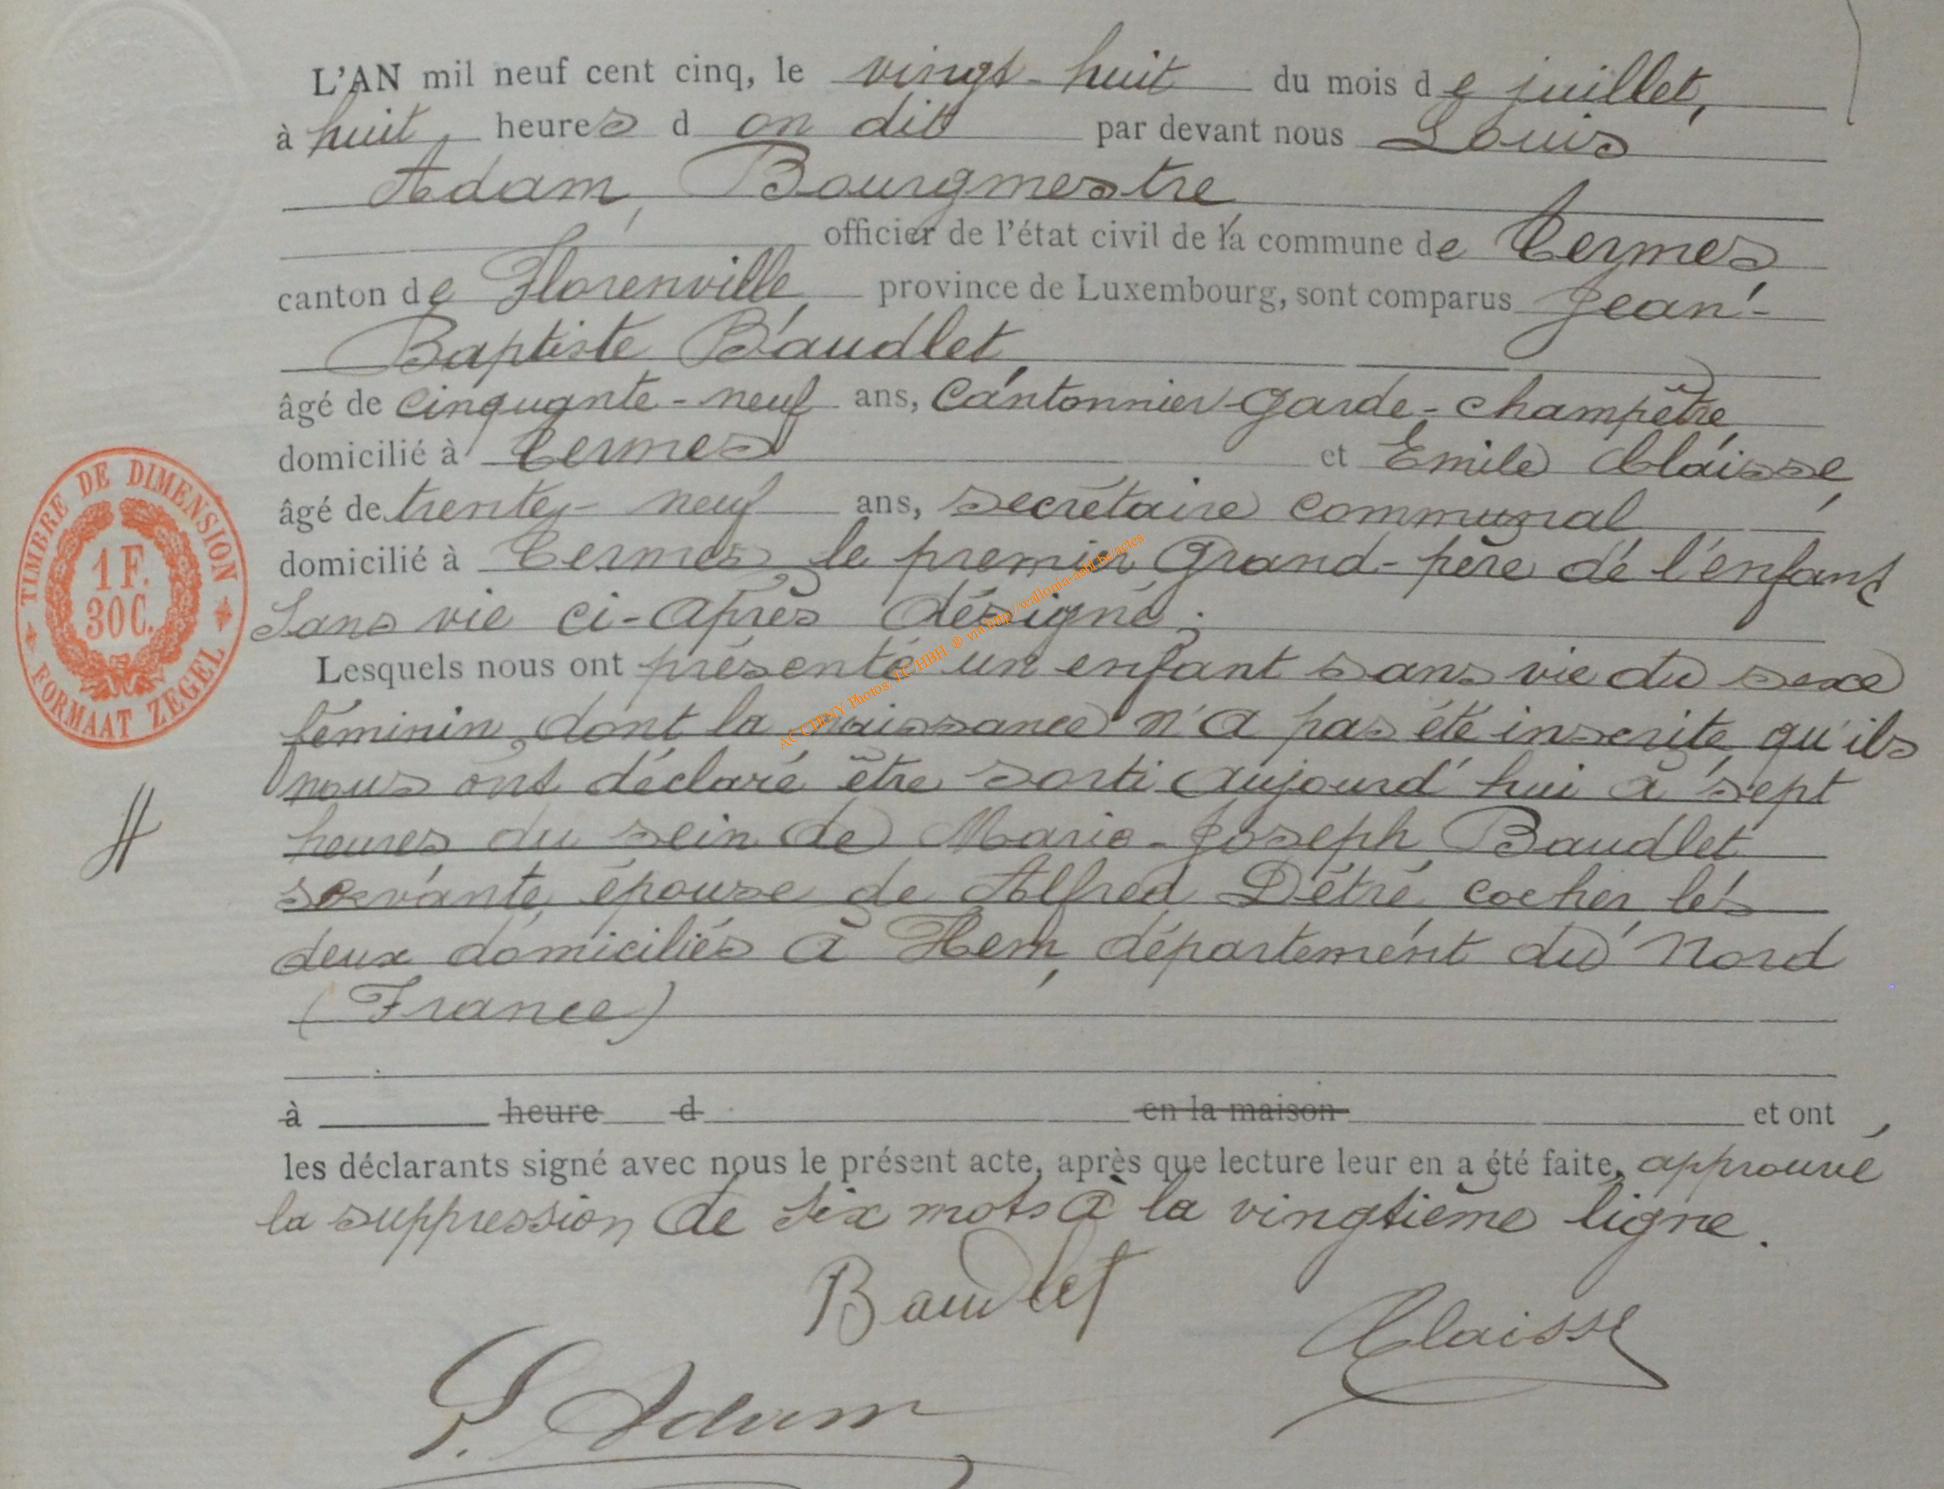 L'AN mil neuf cent cinq, le vingt-huit du mois de juillet,
à huit heures d on dit par devant nous Louis
Adam, Bourgmestre
officier de l'état civil de la commune de Termes
canton de Florenville province de Luxembourg, sont comparus Jean-
Baptiste Baudlet,
âgé de cinquante-neuf ans, cantonnier garde-champêtre
domicilié à Termes et Emile Claisse,
âgé de trente-neuf ans, secrétaire communal
domicilié à Termes, le premier grand-père de l'enfant
sans vie ci-après désigné;
Lesquels nous ont présenté un enfant sans vie du sexe
féminin, dont la naissance n'a pas été inscrite, qu'ils
nous ont déclaré être sorti aujourd'hui à sept
heures du sein de Marie-Joseph Baudlet
servante, épouse de Alfred Détré, cocher les
deux domiciliés à Hem, département du Nord
(France)
à heure d en la maison et ont
les déclarants signé avec nous le présent acte, après que lecture leur en a été faite, approuvé
la suppression de six mots à la vingtième ligne.
Baudlet
Claisse
L. Adam
TIMBRE DE DIMENSION
1 F.
30 C.
FORMAAT ZEGEL